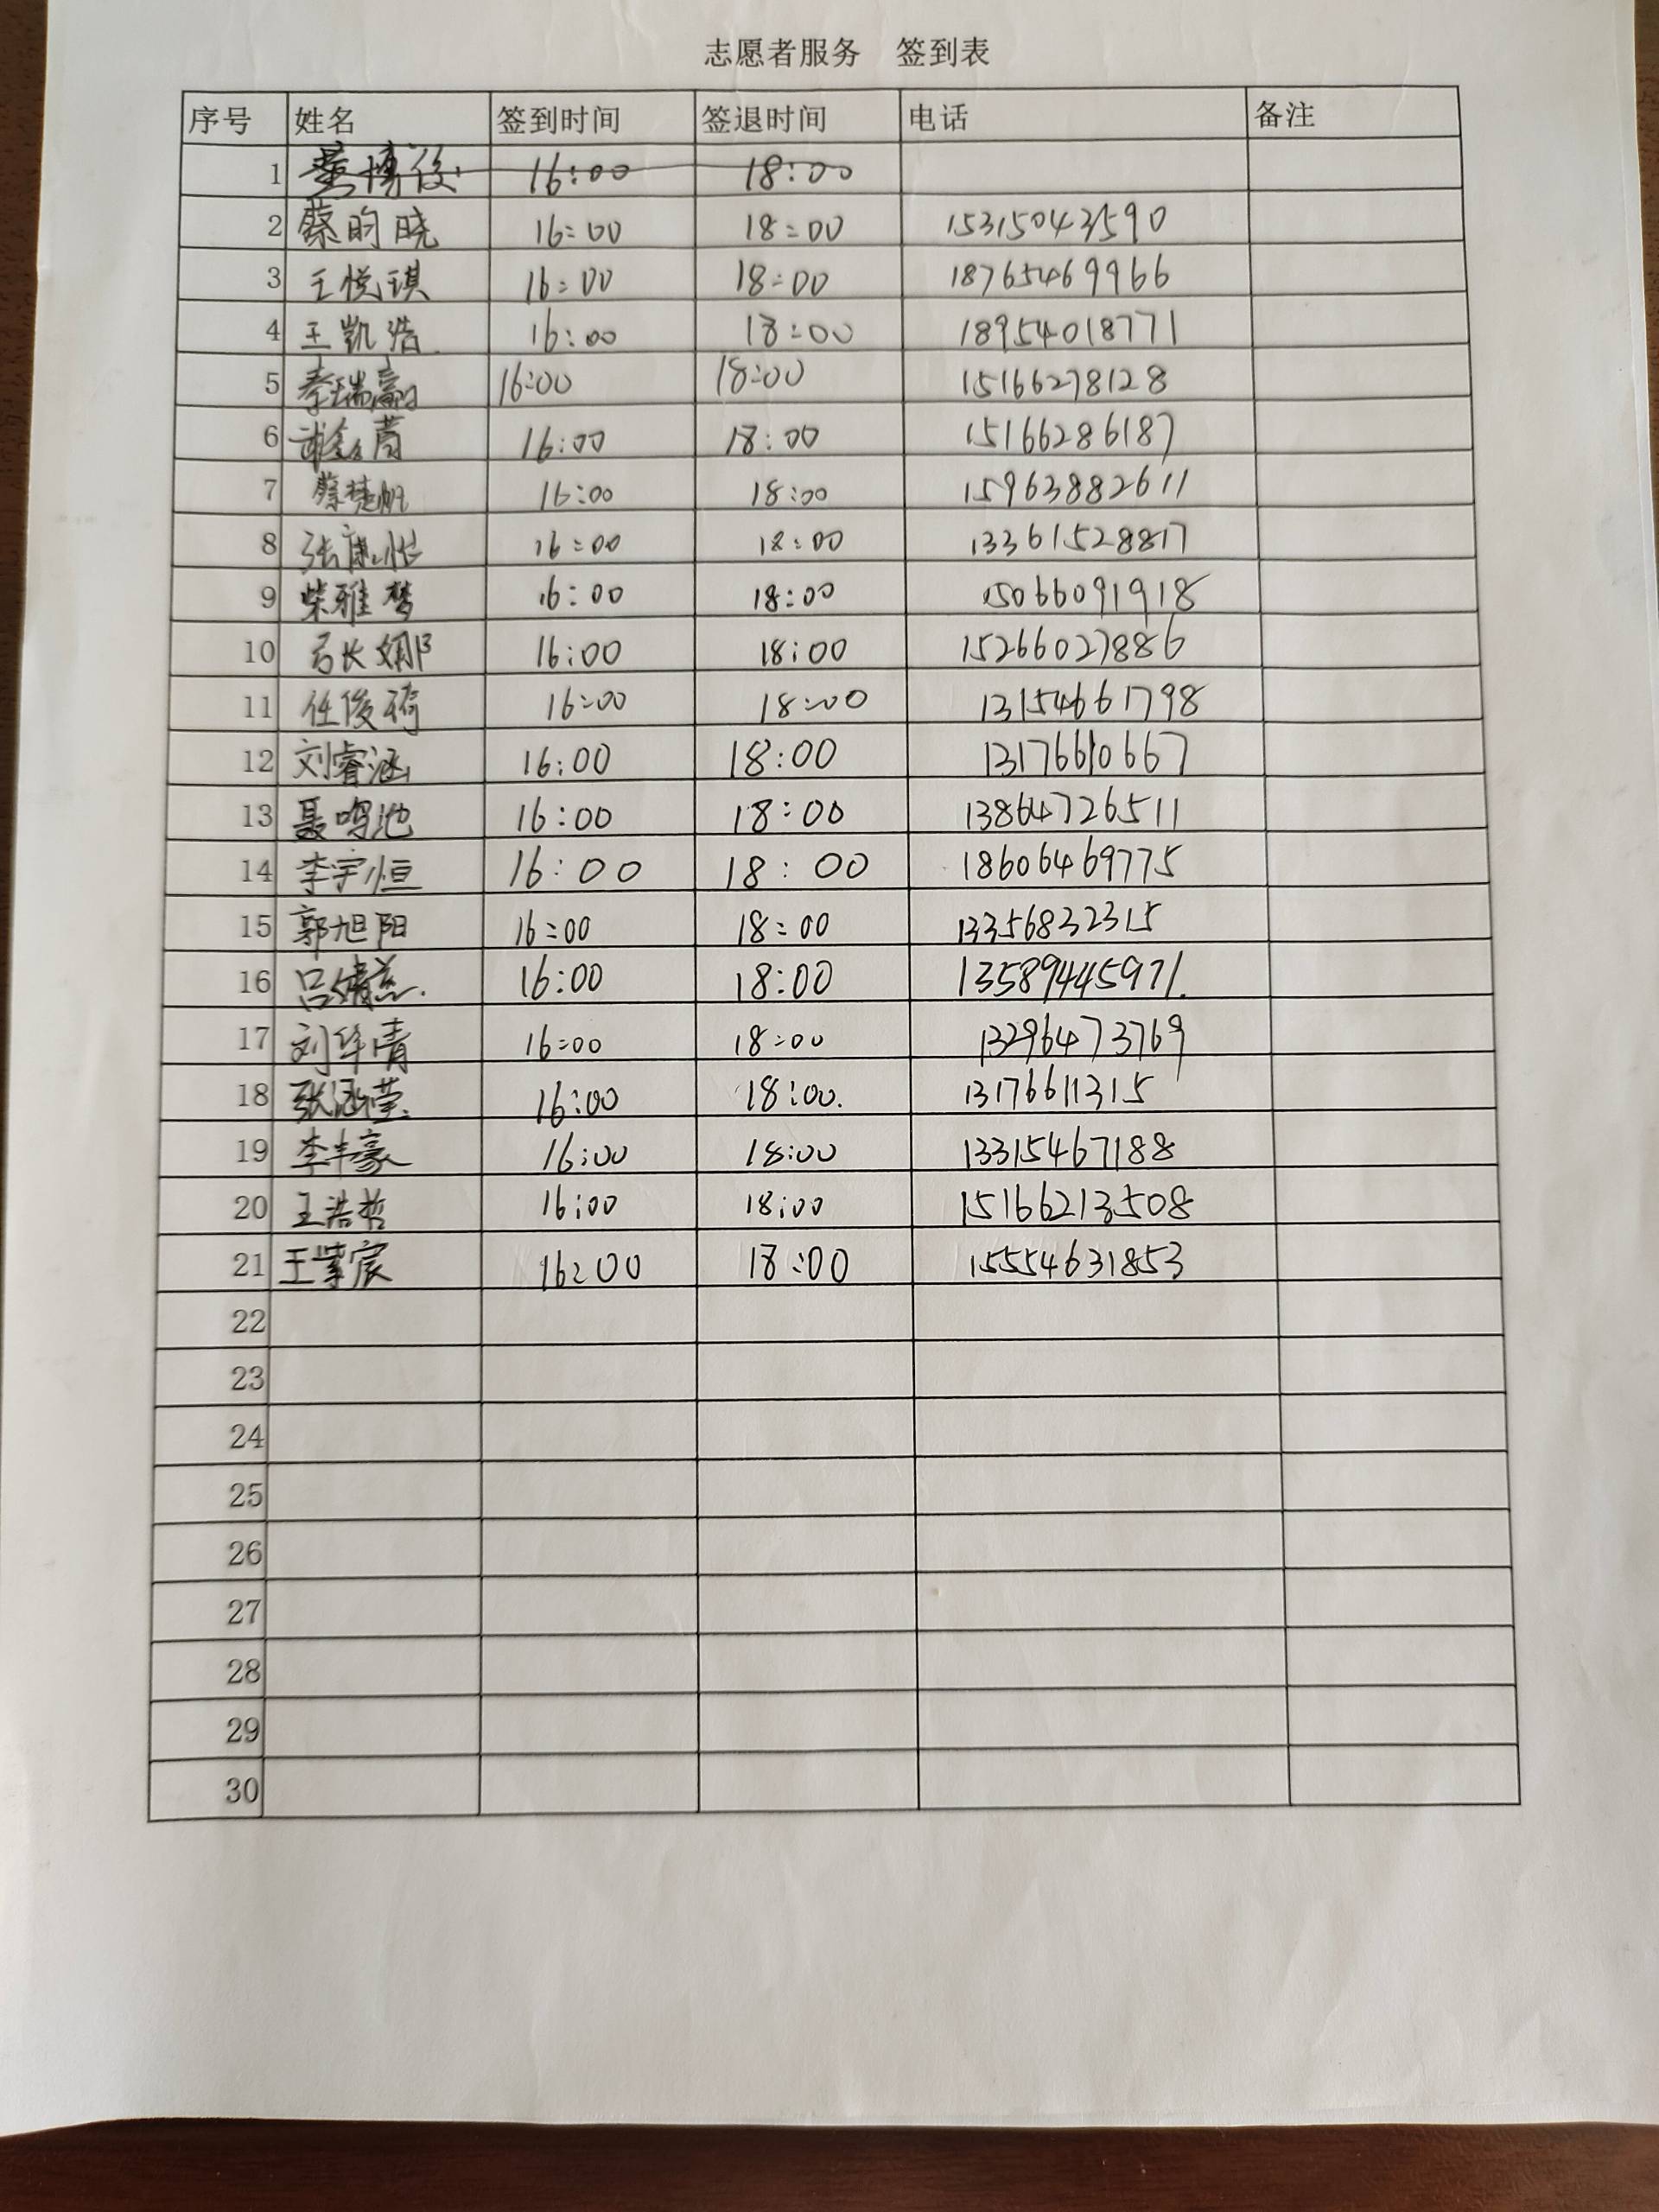 志愿者服务 签到表
序号 姓名 签到时间 签退时间 电话 备注
1 16:00 18:00
2 蔡昀晓 16:00 18:00 15315043590
3 王悦琪 16:00 18:00 18765469966
4 王凯浩 16:00 18:00 18954018771
5 16:00 18:00 15166278128
6 16:00 18:00 15166286187
7 蔡楚帆 16:00 18:00 15963882611
8 16:00 18:00 13361528817
9 柴雅梦 16:00 18:00 15066091918
10 16:00 18:00 15266027886
11 任俊琦 16:00 18:00 13154661798
12 刘睿涵 16:00 18:00
13 聂鸣池 16:00 18:00 13864726511
14 李宇恒 16:00 18:00 18606469775
15 郭旭阳 16:00 18:00 13356832315
16 16:00 18:00 13589445971
17 刘华清 16:00 18:00 13296473769
18 张涵莹 16:00 18:00 13176611315
19 李丰豪 16:00 18:00 13315467188
20 王浩哲 16:00 18:00 15166213508
21 王紫宸 16:00 18:00 15554631853
22
23
24
25
26
27
28
29
30